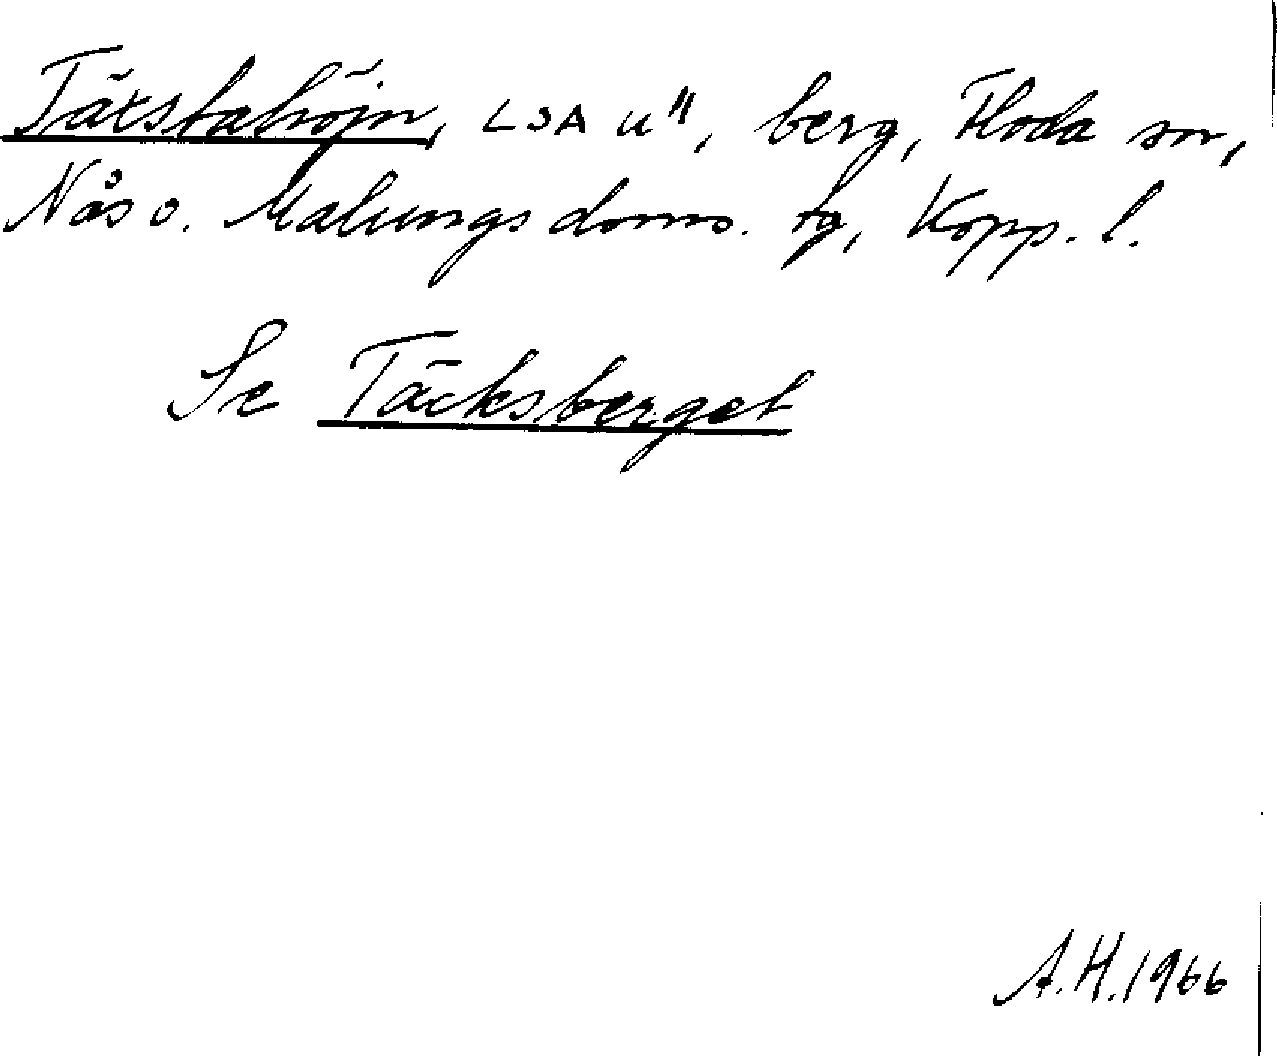 Täxstahöjn, LSA u", berg, Floda sn,
Nås o. Malungs doms. tg, Kopp. l.
Se Täcksberget
A.H. 1966